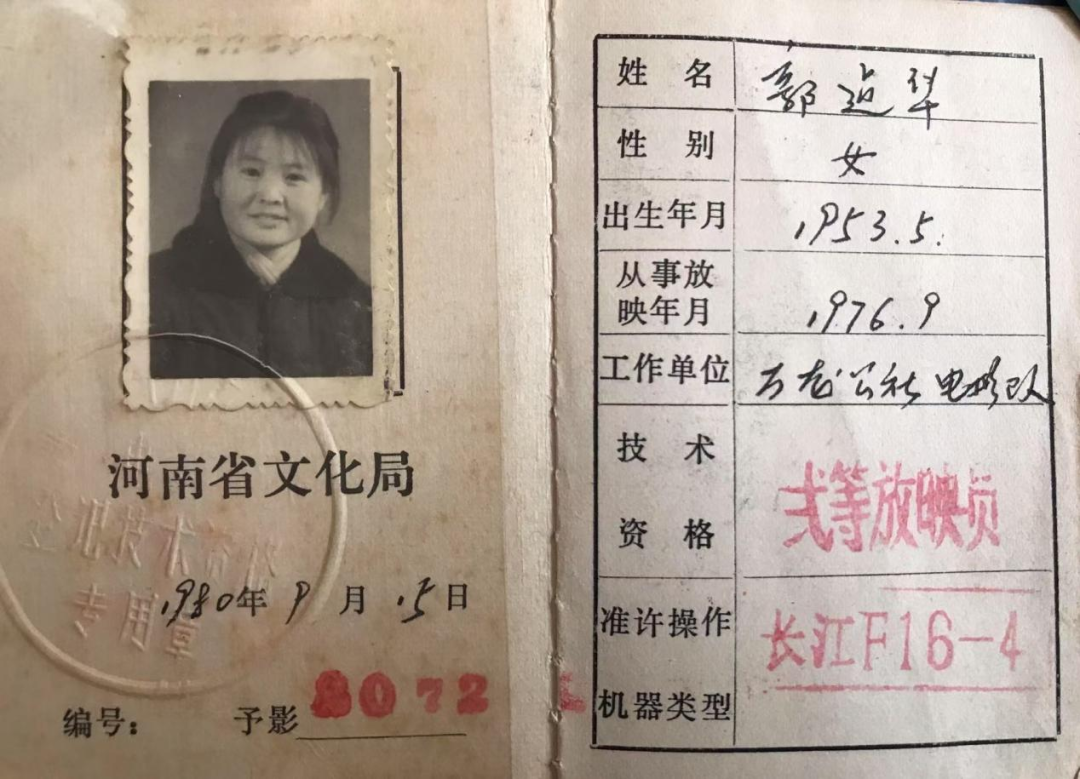 河南省文化局
技术
专用章
1980年9月15日
编号: 予影 8072
姓名 郭
性别 女
出生年月 1953.5.
从事放
映年月 1976.9
工作单位 公社电影队
技术
资格 弍等放映员
准许操作
机器类型 长江F16-4